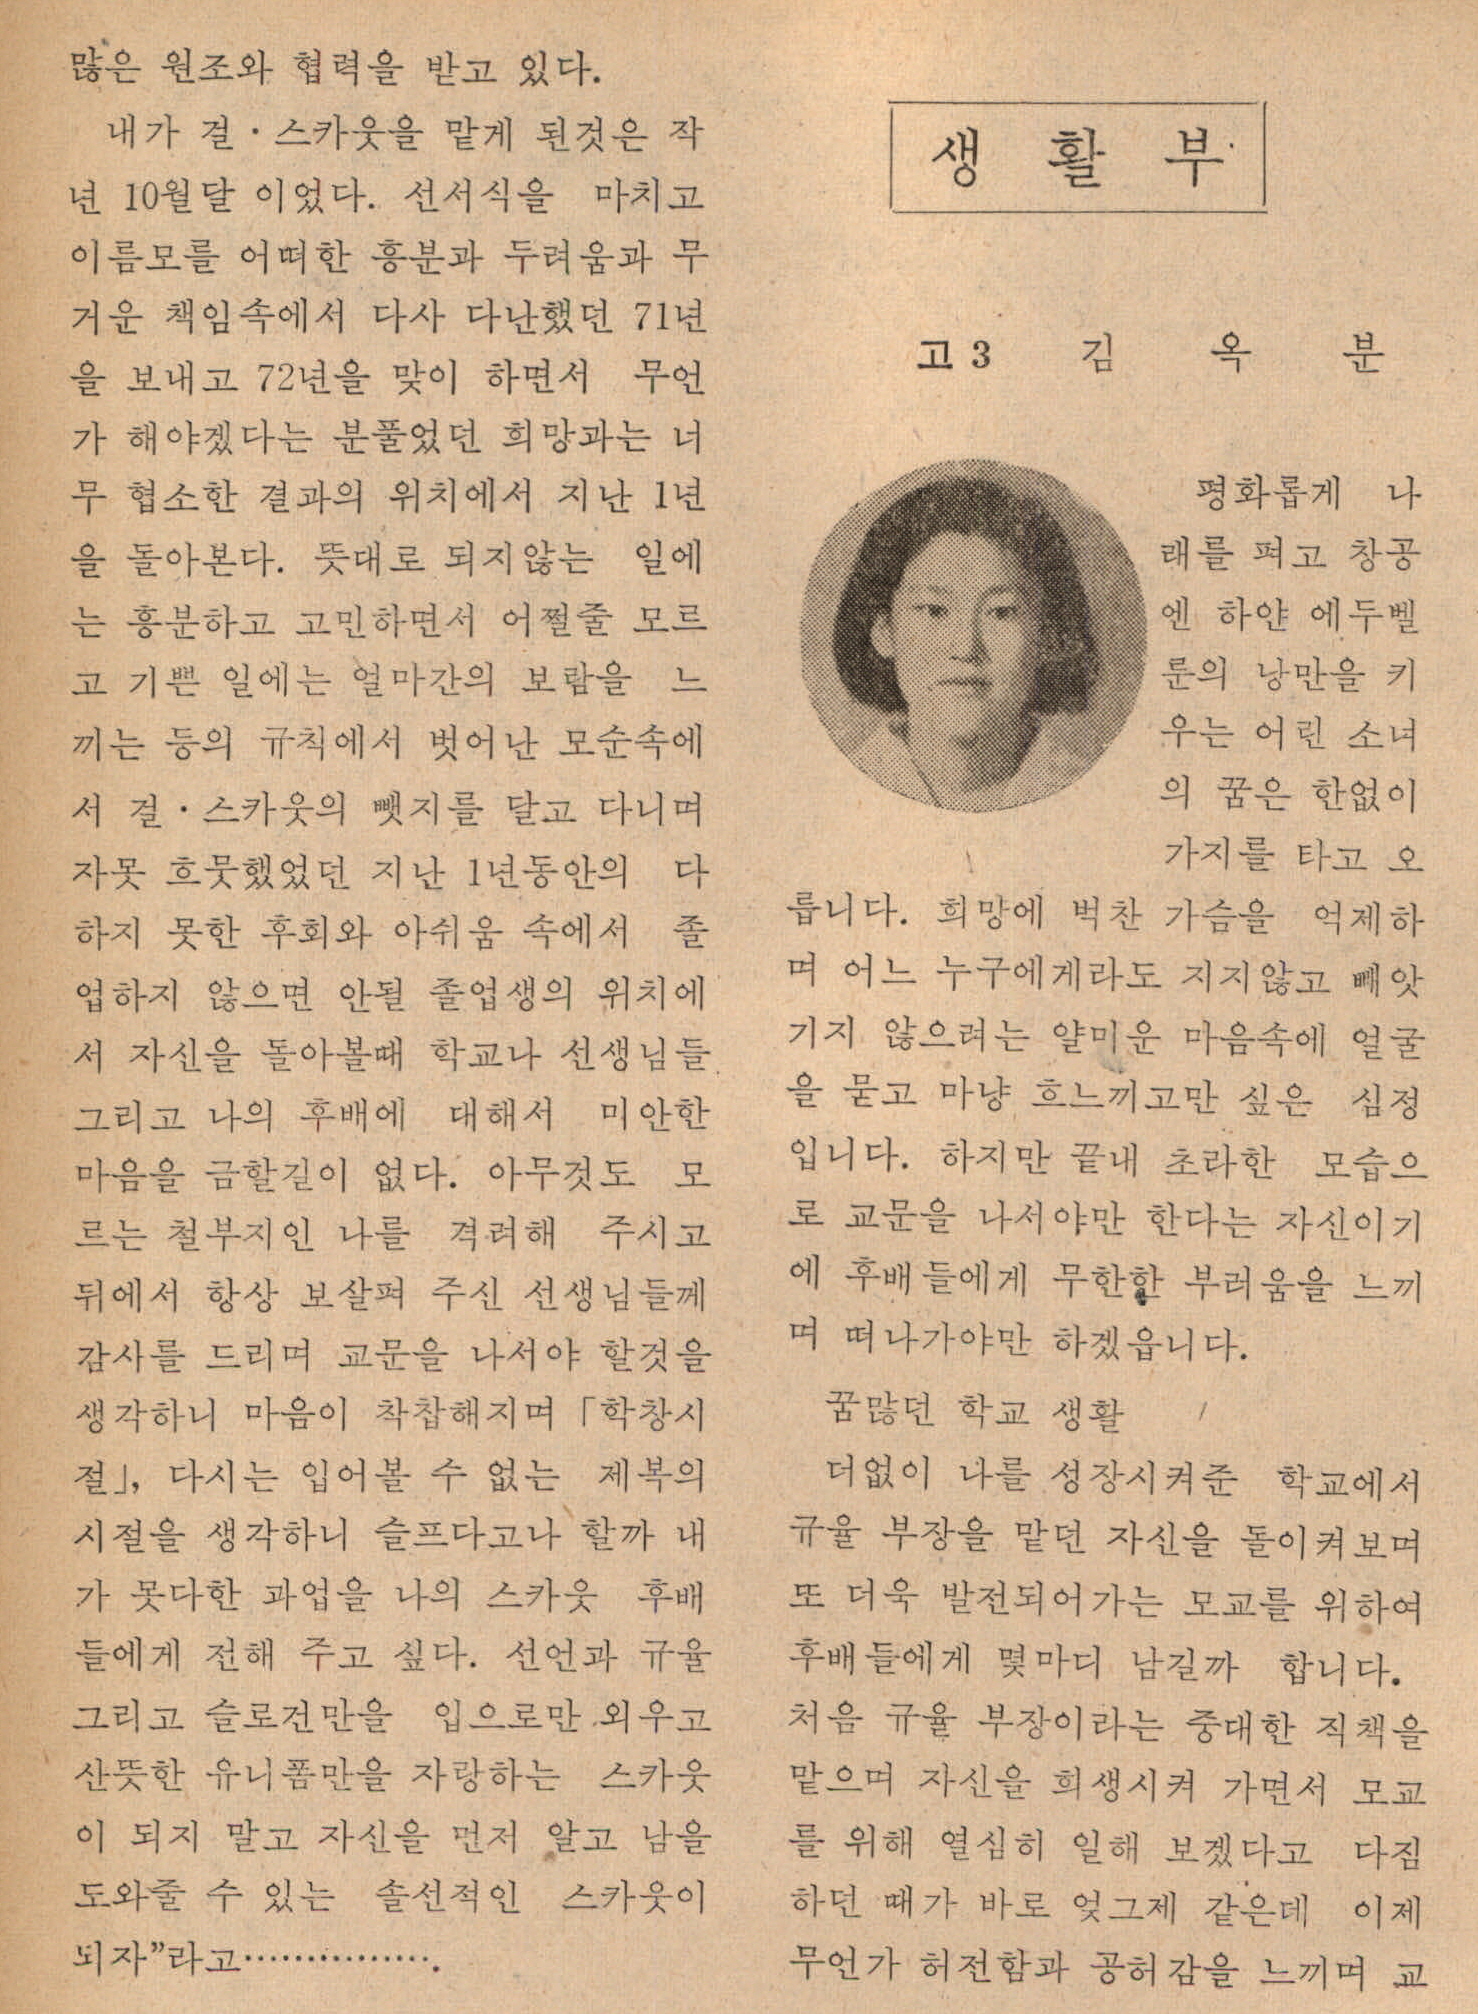 많은 원조와 협력을 받고 있다.
내가 걸·스카웃을 맡게 된것은 작
년 10월달 이었다. 선서식을 마치고
이름모를 어떠한 흥분과 두려움과 무
거운 책임속에서 다사 다난했던 71년
을 보내고 72년을 맞이 하면서 무언
가 해야겠다는 분풀었던 희망과는 너
무 협소한 결과의 위치에서 지난 1년
을 돌아본다. 뜻대로 되지않는 일에
는 흥분하고 고민하면서 어쩔줄 모르
고 기쁜 일에는 얼마간의 보람을 느
끼는 등의 규칙에서 벗어난 모순속에
서 걸·스카웃의 뺏지를 달고 다니며
자못 흐뭇했었던 지난 1년동안의 다
하지 못한 후회와 아쉬움 속에서 졸
업하지 않으면 안될 졸업생의 위치에
서 자신을 돌아볼때 학교나 선생님들
그리고 나의 후배에 대해서 미안한
마음을 금할길이 없다. 아무것도 모
르는 철부지인 나를 격려해 주시고
뒤에서 항상 보살펴 주신 선생님들께
감사를 드리며 교문을 나서야 할것을
생각하니 마음이 착찹해지며 「학창시
절」, 다시는 입어볼 수 없는 제복의
시절을 생각하니 슬프다고나 할까 내
가 못다한 과업을 나의 스카웃 후배
들에게 전해 주고 싶다. 선언과 규율
그리고 슬로건만을 입으로만 외우고
산뜻한 유니폼만을 자랑하는 스카웃
이 되지 말고 자신을 먼저 알고 남을
도와줄 수 있는 솔선적인 스카웃이
되자”라고……………….
생 활 부
고3 김 옥 분
평화롭게 나
래를 펴고 창공
엔 하얀 에두벨
룬의 낭만을 키
우는 어린 소녀
의 꿈은 한없이
가지를 타고 오
릅니다. 희망에 벅찬 가슴을 억제하
며 어느 누구에게라도 지지않고 빼앗
기지 않으려는 얄미운 마음속에 얼굴
을 묻고 마냥 흐느끼고만 싶은 심정
입니다. 하지만 끝내 초라한 모습으
로 교문을 나서야만 한다는 자신이기
에 후배들에게 무한한 부러움을 느끼
며 떠나가야만 하겠읍니다.
꿈많던 학교 생활
더없이 나를 성장시켜준 학교에서
규율 부장을 맡던 자신을 돌이켜보며
또 더욱 발전되어가는 모교를 위하여
후배들에게 몇마디 남길까 합니다.
처음 규율 부장이라는 중대한 직책을
맡으며 자신을 희생시켜 가면서 모교
를 위해 열심히 일해 보겠다고 다짐
하던 때가 바로 엊그제 같은데 이제
무언가 허전함과 공허감을 느끼며 교